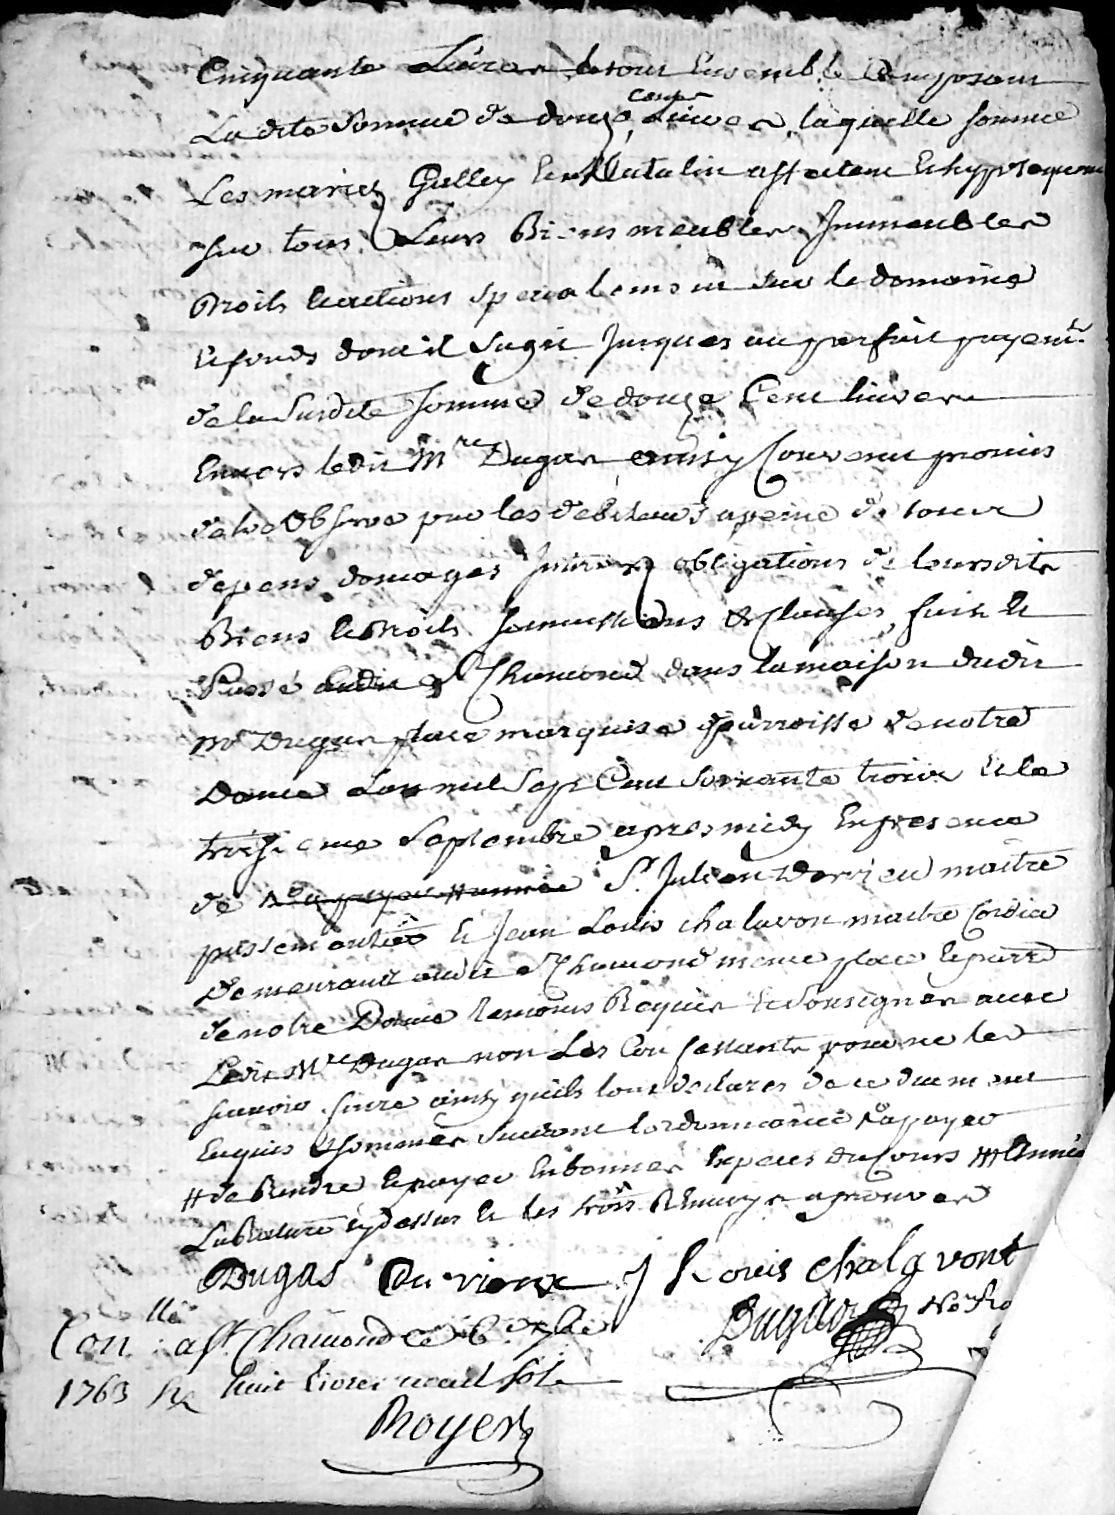 Cinquante Livres le tout Ensemble Composant
La dite Somme de douze cents Livres, laquelle somme
Les mariés Galley et Matalin affectent Et hypotequent
sur tous Leurs Biens meubles Immeubles
Droits et actions specialement sur le domaine
et fonds dont il sagit Jusques au parfait payemt.
de la Susdite somme de douze Cent livres
Envers ledit Mre Dugas ainsy Convenu promis
de le Observé par les debiteurs a peine de tous
depens domages Interets obligations de leursdits
Biens et Droits soumissions & Clauses, fait et
Passé audit St Chamond dans la maison dudit
Mr Dugas place marquise parroisse de notre
Dame L'an mil Sept Cent Soixante trois Et le
treizieme Septembre apres midy En presence
de Sr. Julien Dervieu maitre
passementier et Jean Louis chalavon maitre Cordier
demeurant audit St Chamond meme place et parre
de notre Dame temoins Requis et Soussignés avec
Ledit Mre Dugas non Les Confessants pour ne le
scavoir faire ainsy quils l'ont declarés de ce duement
Enquis & sommés suivant l'ordonnance # a payer
# de Rendre et payer En bonnes Especes du Cours ### Année
La Rature cy dessus et les trois Renvoys aprouvés
Dugas Dervieux J Louis chalavont
Conllé a St Chamond ce 26e 7bre Nore Ro
1763 Rx huit livres neuf sols
Royer